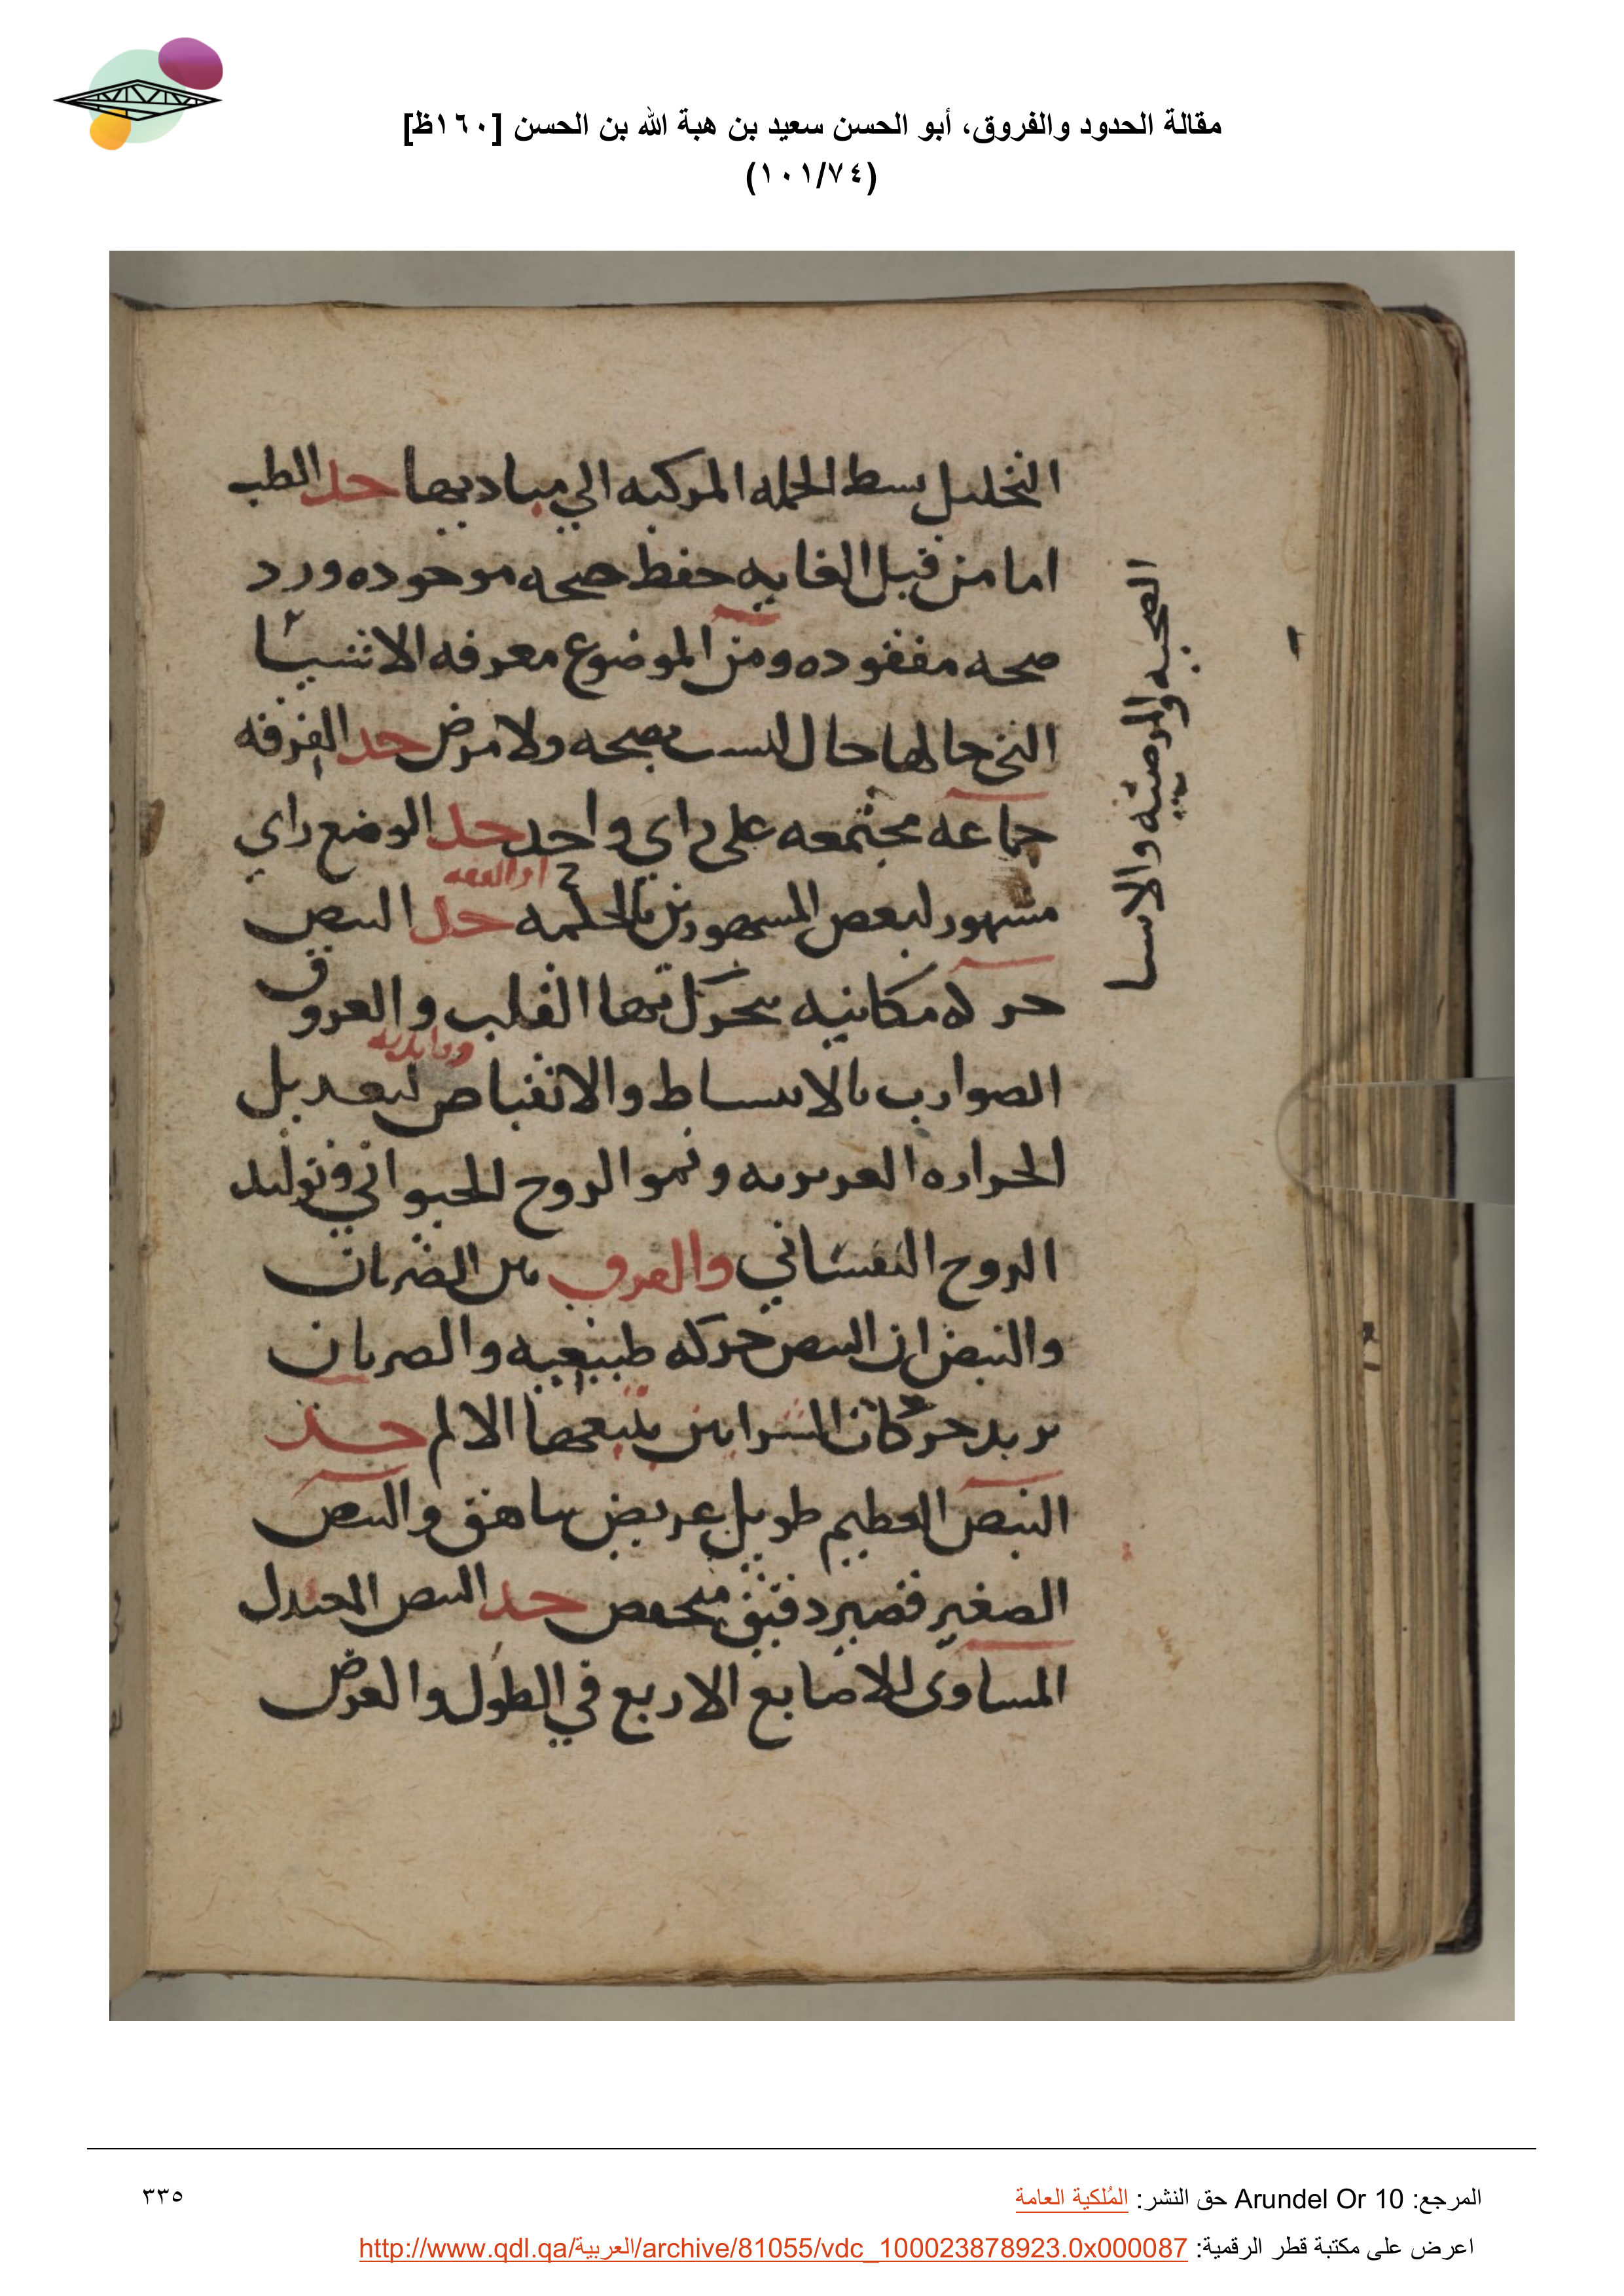 مقالة الحدود والفروق، أبو الحسن سعيد بن هبة الله بن الحسن [١٦٠ظ]
(١٠١/٧٤)
التحليل بسط الجمله المركبه الي مباديها حد الطب
اما من قبل الغايه حفظ صحه موجوده ورد
صحه مفقوده ومن الموضوع معرفه الاشيا
الصحيه والمرضيه والاشيا
التي حالها حال ليست بصحه ولا مرض حد الفرقه
جماعه مجتمعه على راي واحد حد الوضع راي
مشهور لبعض المشهورين بالحكمه حد النبض
حركه مكانيه يتحرك بها القلب والعروق
الضوارب بالانبساط والانقباض لتعديل
الحراره الغريزيه ونمو الروح الحيواني وتوليد
الروح النفساني والفرق بين الضربان
والنبض ان النبض حركه طبيعيه والضربان
يريد حركات الشرايين يتبعها الالم حد
النبض العظيم طويل عريض شاهق والنبض
الصغير قصير دقيق منخفض حد النبض المعتدل
المساوى للاصابع الاربع في الطول والعرض
المرجع: Arundel Or 10 حق النشر: المُلكية العامة
٣٣٥
اعرض على مكتبة قطر الرقمية: http://www.qdl.qa/العربية/archive/81055/vdc_100023878923.0x000087